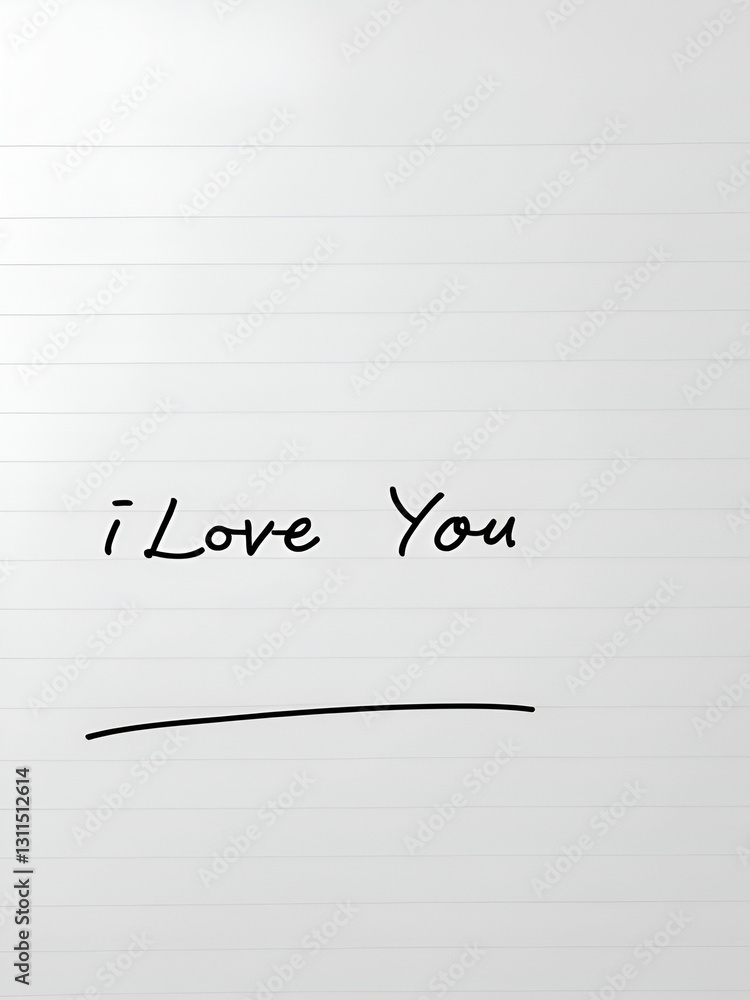 i Love You
Adobe Stock | #1311512614